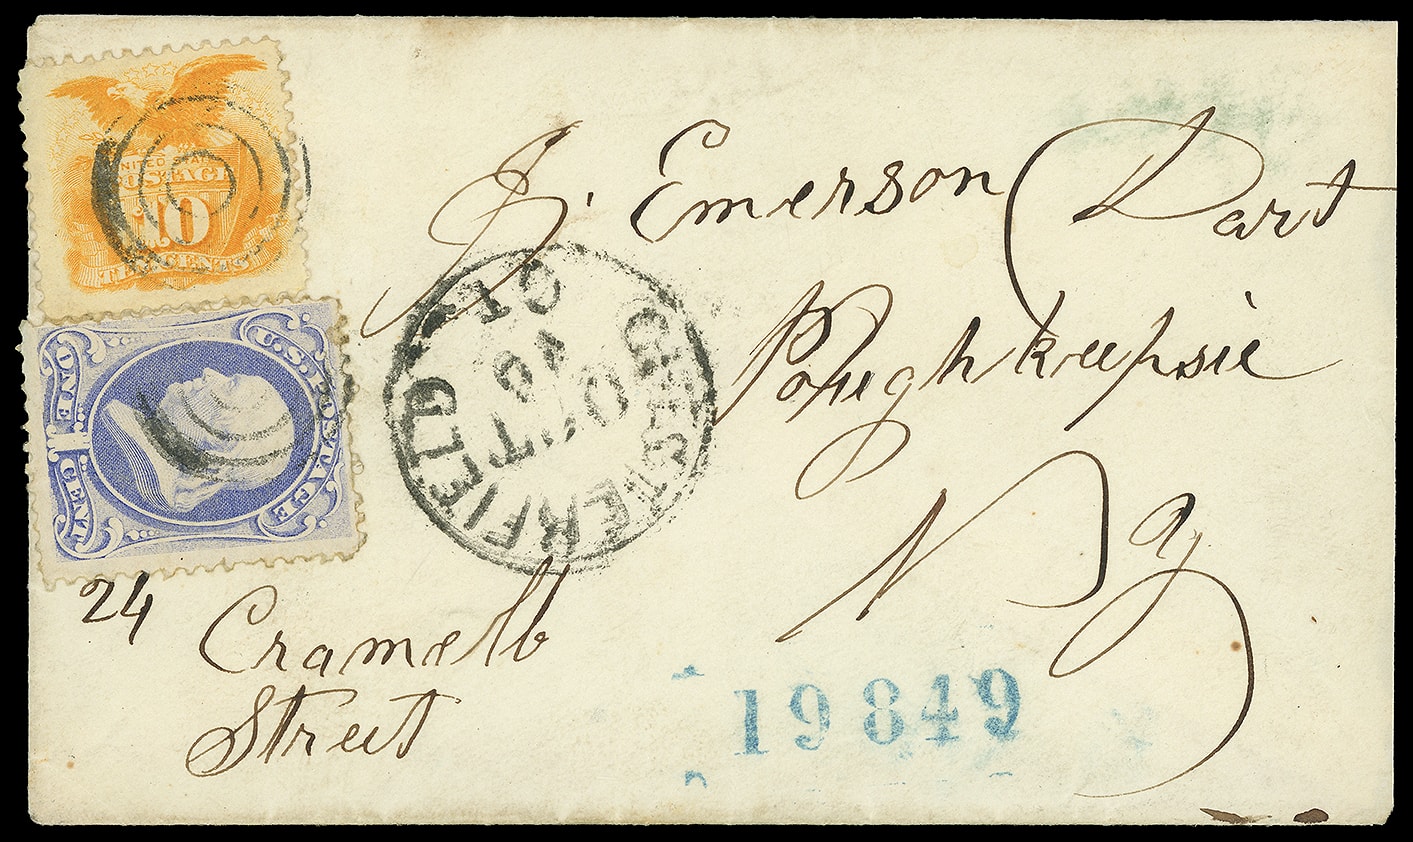 UNITED STATES
POSTAGE
10
TEN CENTS
U.S. POSTAGE
ONE 1 CENT
CHESTERFIELD
OCT
16
J. Emerson Dart
Poughkeepsie
N Y
24
Street
19849